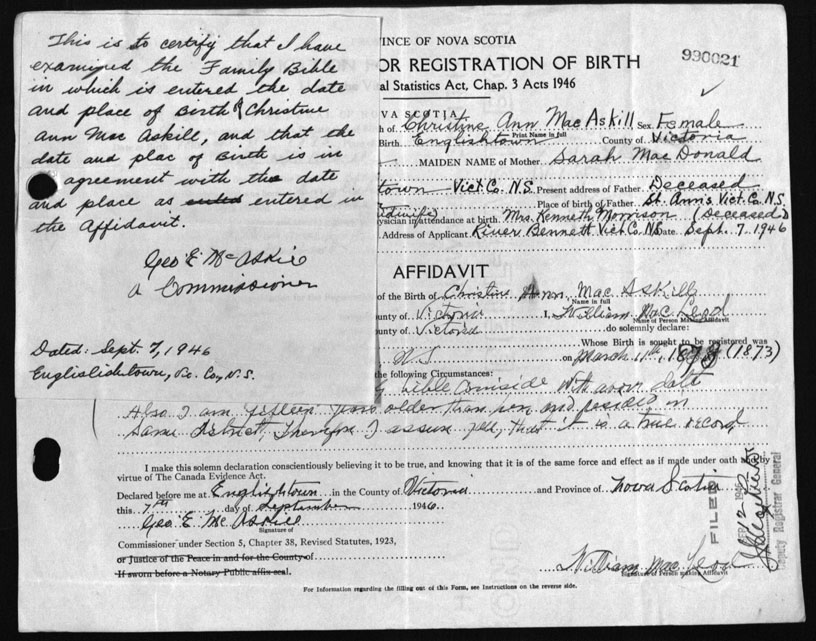 This is to certify that I have
examined the Family Bible
in which is entered the date
and place of Birth of Christine
Ann Mac Askill, and that the
date and plac of Birth is in
agreement with the date
and place as entered in
the Affidavit.
Geo E McAskill
a Commissioner
Dated: Sept. 7, 1946
Englishtown, Vic. Co, N.S.
INCE OF NOVA SCOTIA
OR REGISTRATION OF BIRTH
al Statistics Act, Chap. 3 Acts 1946
990021
VA SCOTIA
h of Christine Ann MacAskill Sex Female
Print Name in full
Birth Englishtown County of Victoria
MAIDEN NAME of Mother Sarah MacDonald
town Vict. Co. N.S. Present address of Father Deceased
Place of birth of Father St. Ann's Vict. Co. N.S.
(midwife) ysician in attendance at birth. Mrs. Kenneth Morrison (Deceased)
Address of Applicant River Bennett Vict Co. NS Date Sept. 7, 1946
AFFIDAVIT
of the Birth of Christine Ann Mac Askill
Name in full
unty of Victoria I, William MacLeod
Name of Person Making Affidavit
unty of Victoria do solemnly declare:
Whose Birth is sought to be registered was
N S on March 11th, 1873 (1873)
the following Circumstances:
bible coinside with above date
Also I am fifteen years older than her and resided in
same district, therefore I assure you, that it is a true record
I make this solemn declaration conscientiously believing it to be true, and knowing that it is of the same force and effect as if made under oath and by
virtue of The Canada Evidence Act.
Declared before me at Englishtown in the County of Victoria and Province of Nova Scotia
this 7th day of September 1946
Geo. E. McAskill
Signature of
Commissioner under Section 5, Chapter 38, Revised Statutes, 1923,
or Justice of the Peace in and for the County of
If sworn before a Notary Public affix seal.
William MacLeod
Signature of Person making Affidavit
For Information regarding the filling out of this Form, see Instructions on the reverse side.
FILED
SEP 12 1946
Deputy Registrar General